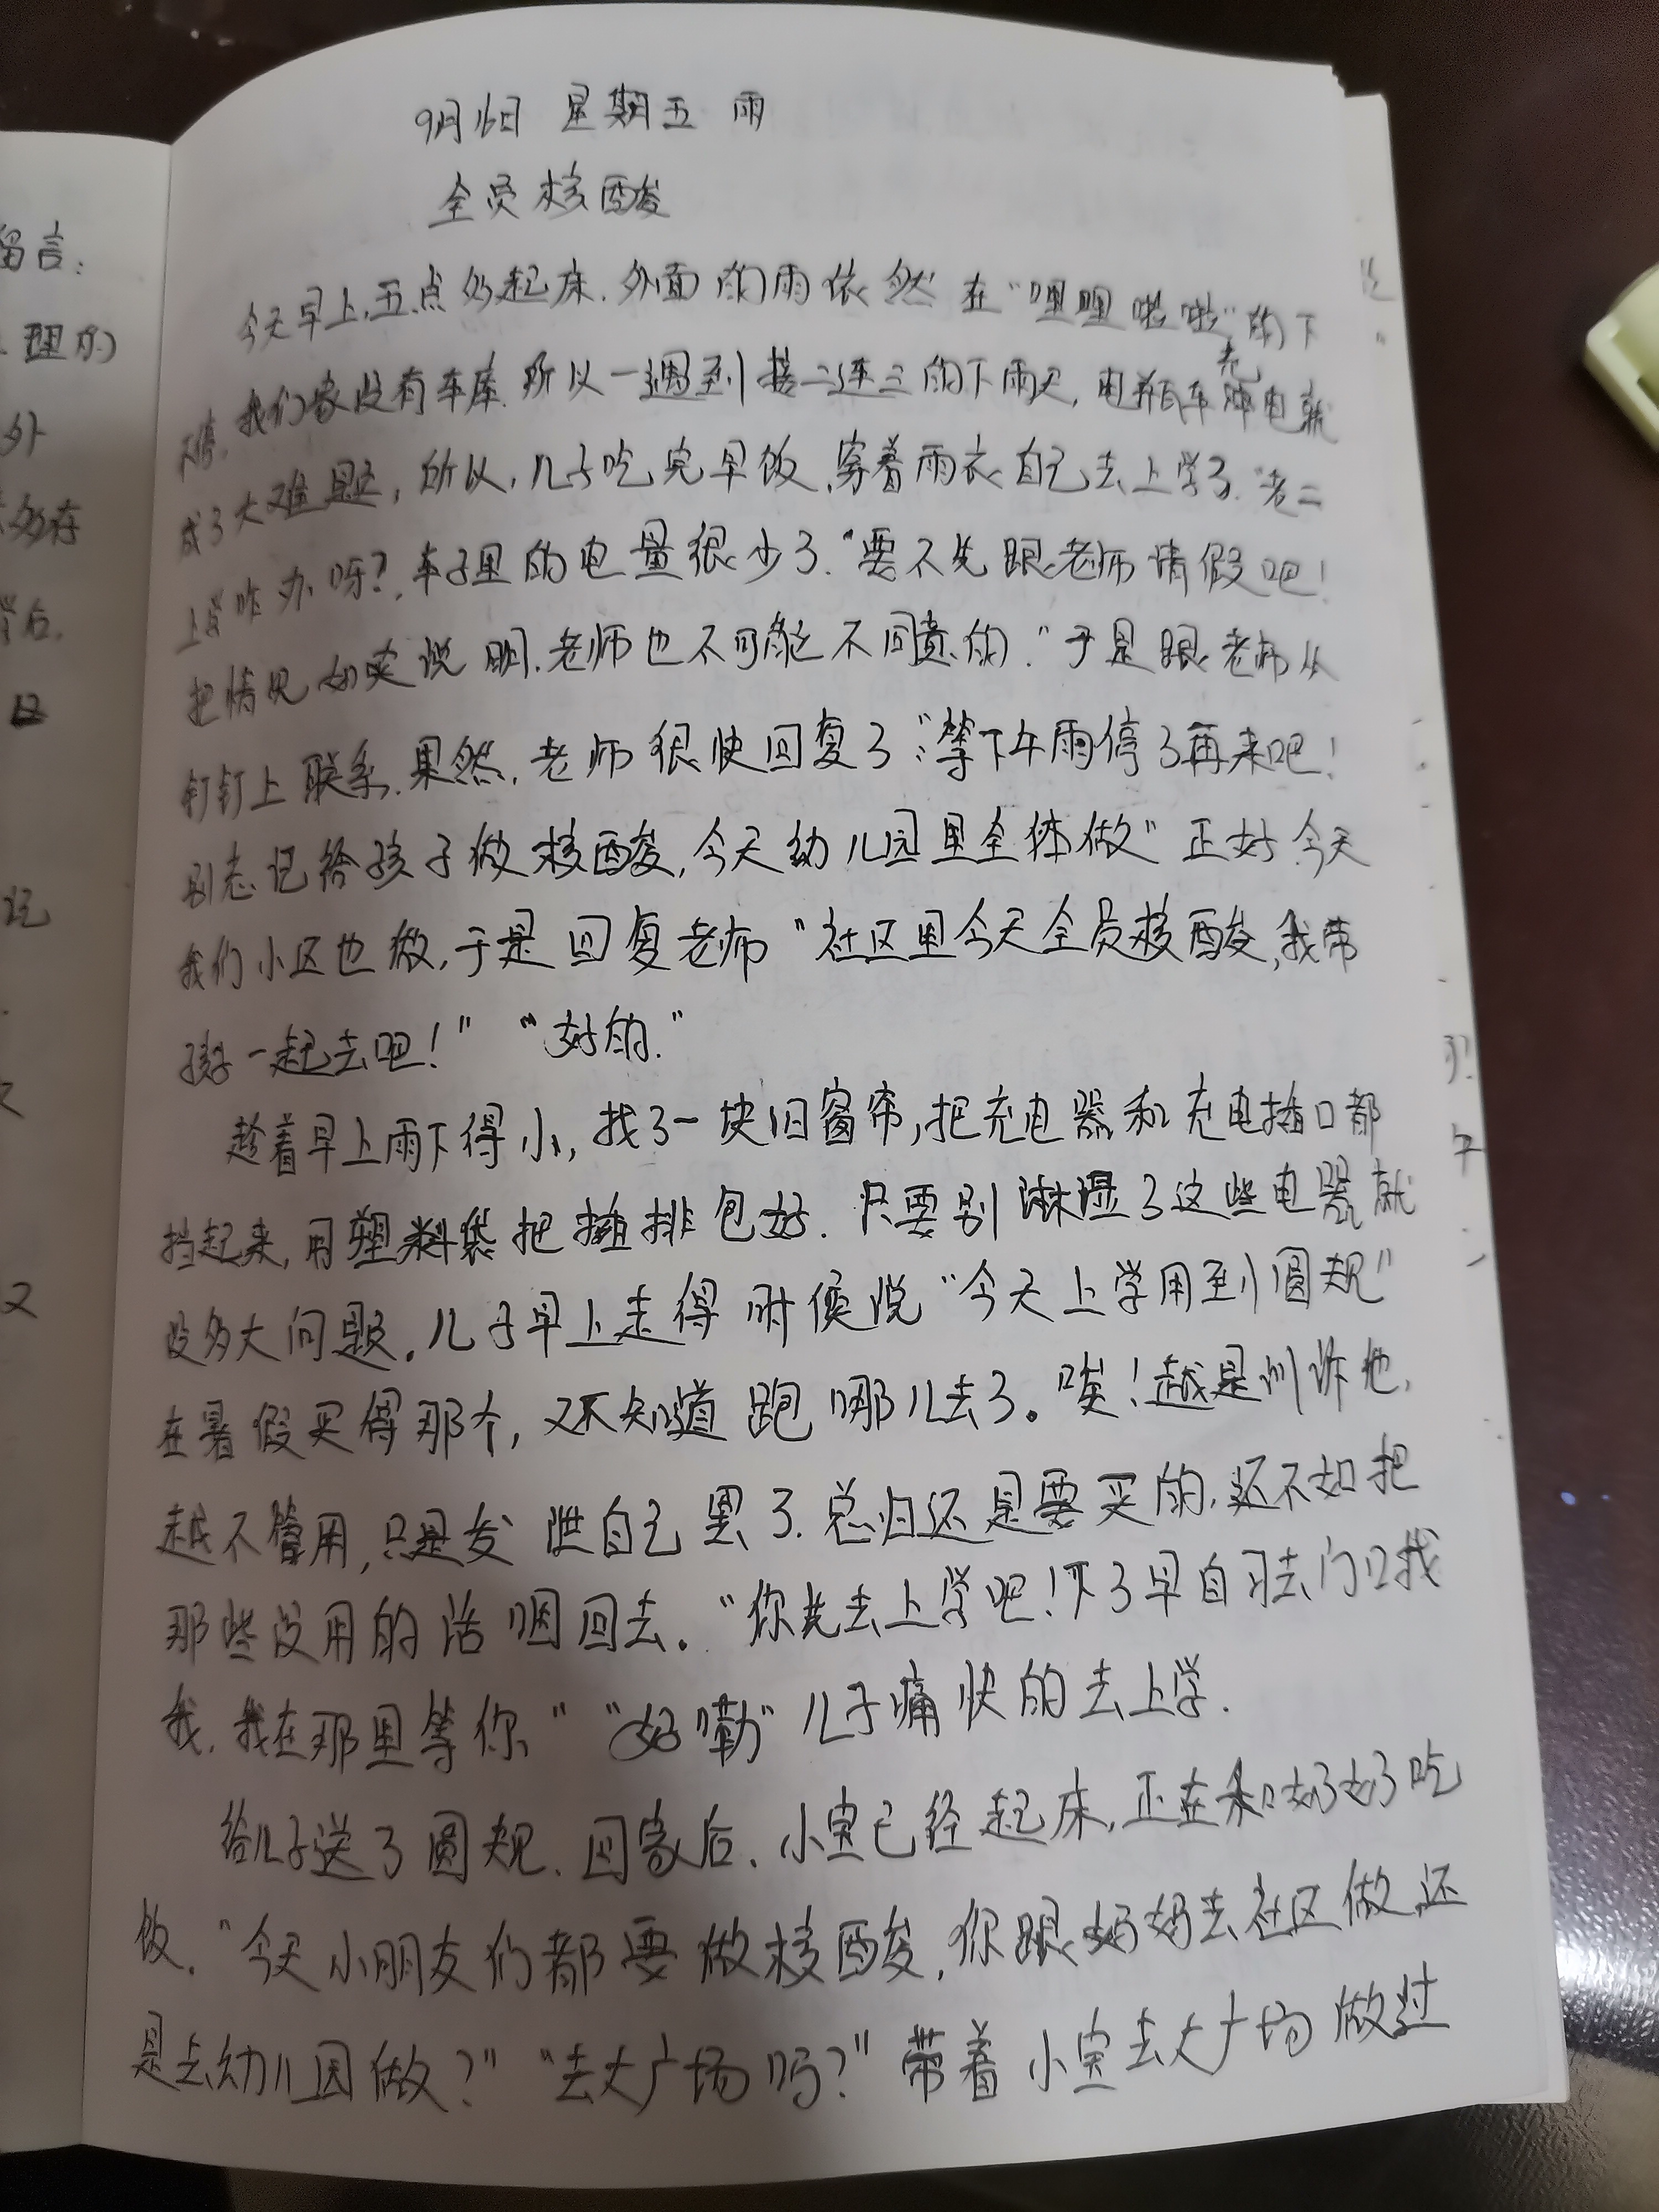 9月16日 星期五 雨
全员核酸
今天早上,五点多起床.外面的雨依然在“哩哩啦啦”的下
不停.我们家没有车库.所以一遇到接二连三的下雨天,电瓶车充电就
成了大难题,所以,儿子吃完早饭,穿着雨衣自己去上学了.“老二
上学咋办呀?,车子里的电量很少了.“要不先跟老师请假吧!
把情况如实说明.老师也不可能不同意的.”于是跟老师从
钉钉上联系.果然,老师很快回复了:“等下午雨停了再来吧!
别忘记给孩子做核酸,今天幼儿园里全体做”正好今天
我们小区也做,于是回复老师“社区里今天全员核酸,我带
孩子一起去吧!”“好的.”
趁着早上雨下得小,找了一块旧窗帘,把充电器和充电插口都
挡起来,用塑料袋把插排包好.只要别淋湿了这些电器就
没多大问题.儿子早上走得时候说“今天上学用到圆规”
在暑假买得那个,又不知道跑哪儿去了。唉!越是训诉他,
越不管用,只是发泄自己累了.总归还是要买的,还不如把
那些没用的话咽回去.“你先去上学吧!下了早自习去门口找
我.我在那里等你”“好嘞”儿子痛快的去上学.
给儿子送了圆规.回家后.小宝已经起床,正在和奶奶吃
饭.“今天小朋友们都要做核酸,你跟奶奶去社区做还
是去幼儿园做?”“去大广场吗?”带着小宝去大广场做过
留言:
理的
外
多存
后.
日
记
又